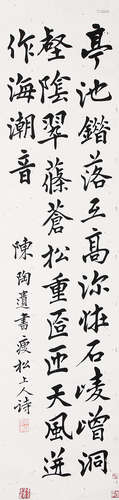 亭池錯落互高深怪石崚嶒洞
壑陰翠篠蒼松重匼匝天風迸
作海潮音
陳陶遺書瘦松上人詩